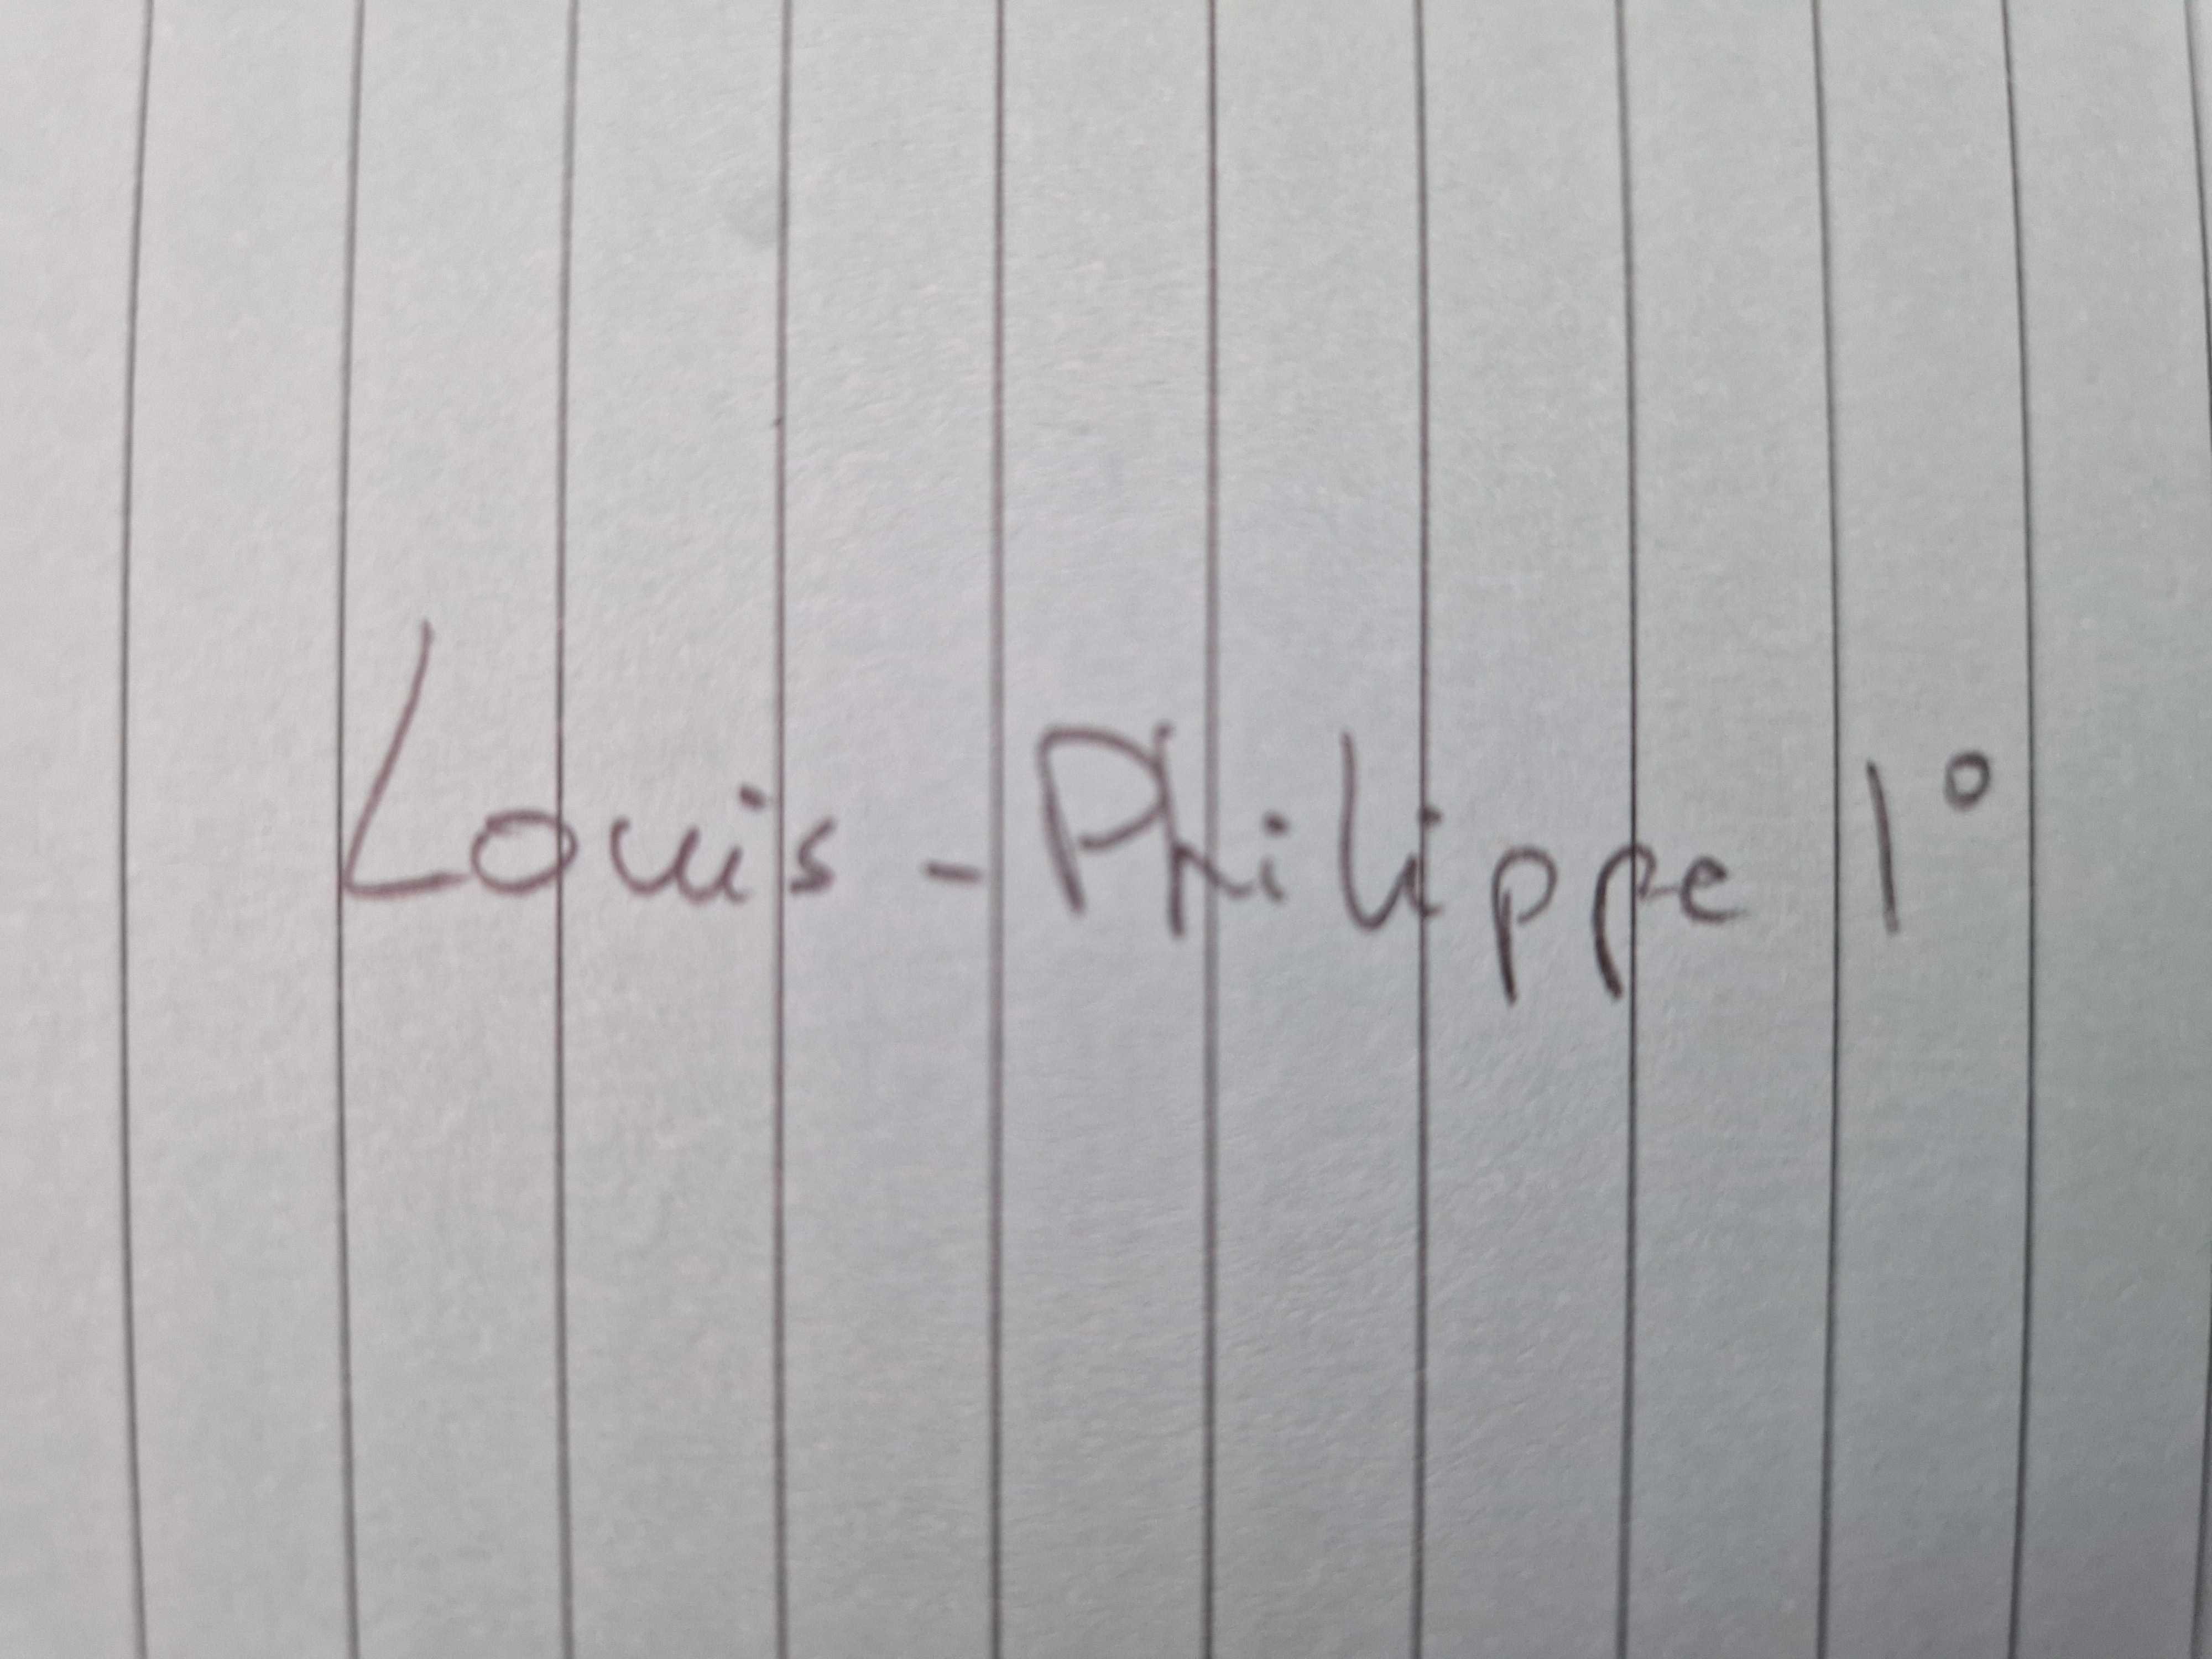 Louis-Philippe 1°